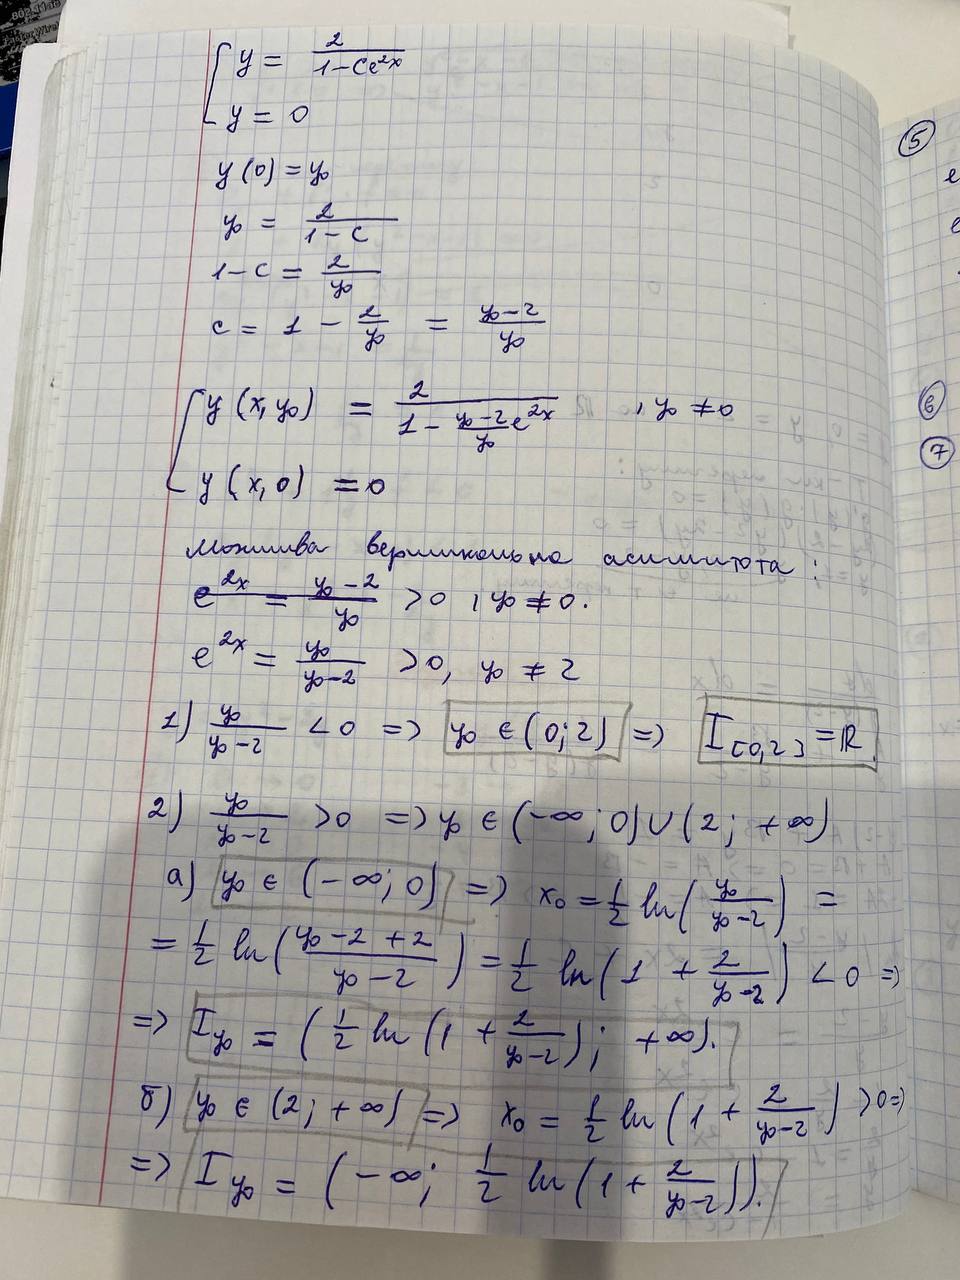 802.11ac
y = 2/(1-Ce^{2x})
y = 0
y(0) = y₀
y₀ = 2/(1-c)
1-c = 2/y₀
c = 1 - 2/y₀ = (y₀-2)/y₀
y(x, y₀) = 2/(1 - (y₀-2)/y₀ e^{2x}) , y₀ ≠ 0
y(x, 0) = 0
Можлива вертикальна асимптота :
e^{2x} = (y₀-2)/y₀ > 0 , y₀ ≠ 0.
e^{2x} = y₀/(y₀-2) > 0, y₀ ≠ 2
1) y₀/(y₀-2) < 0 => y₀ ∈ (0; 2) => I_{[0,2]} = ℝ.
2) y₀/(y₀-2) > 0 => y₀ ∈ (-∞; 0) ∪ (2; +∞)
а) y₀ ∈ (-∞; 0) => x₀ = 1/2 ln(y₀/(y₀-2)) =
= 1/2 ln((y₀-2+2)/(y₀-2)) = 1/2 ln(1 + 2/(y₀-2)) < 0 =>
=> I_{y₀} = (1/2 ln(1 + 2/(y₀-2)); +∞).
б) y₀ ∈ (2; +∞) => x₀ = 1/2 ln(1 + 2/(y₀-2)) > 0 =>
=> I_{y₀} = (-∞; 1/2 ln(1 + 2/(y₀-2))).
5
6
7